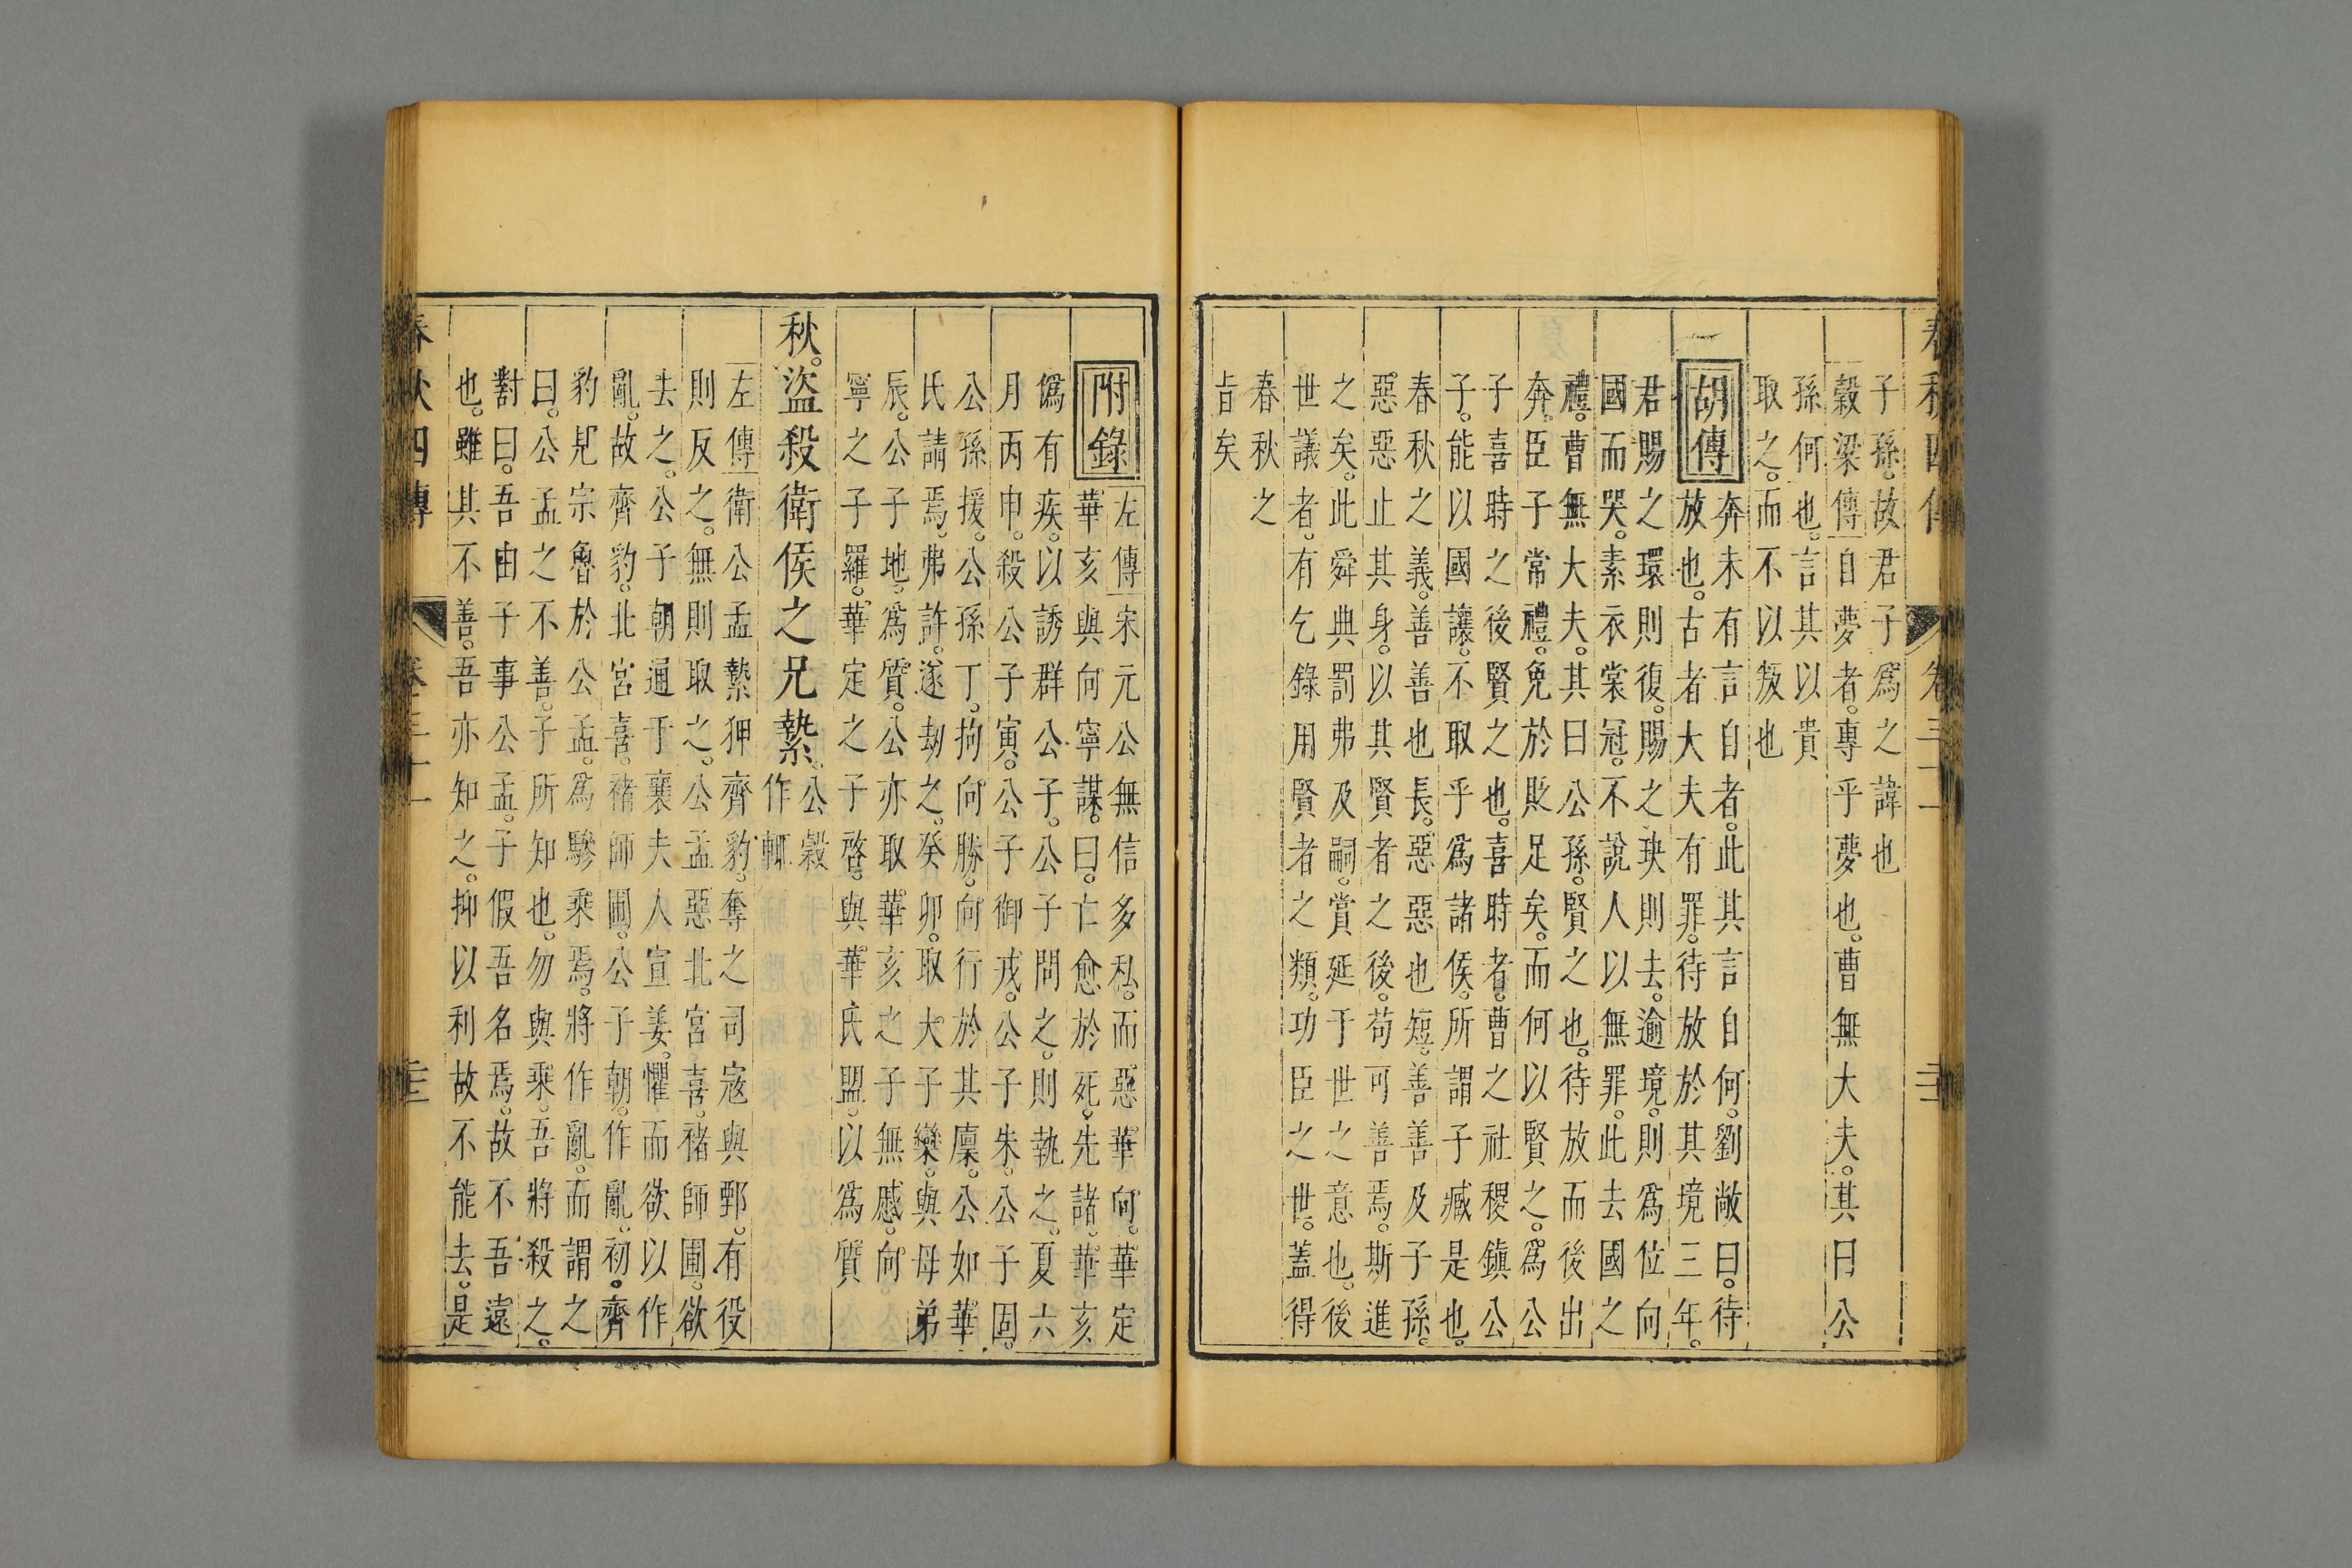 春秋四傳 卷三十一
子孫。故君子爲之諱也
穀梁傳自夢者。專乎夢也。曹無大夫。其曰公
孫何也。言其以貴
取之。而不以叛也
胡傳 奔未有言自者。此其言自何。劉敞曰。待
放也。古者大夫有罪。待放於其境三年。
君賜之環則復。賜之玦則去。逾境。則爲位向
國而哭。素衣裳冠。不說人以無罪。此去國之
禮。曹無大夫。其曰公孫。賢之也。待放而後出
奔。臣子常禮。免於敗足矣。而何以賢之。爲公
子喜時之後賢之也。喜時者。曹之社稷鎮公
子。能以國讓。不取乎爲諸侯。所謂子臧是也。
春秋之義。善善也長。惡惡也短。善善及子孫。
惡惡止其身。以其賢者之後。苟可善焉。斯進
之矣。此舜典罰弗及嗣。賞延于世之意也。後
世議者。有乞錄用賢者之類。功臣之世。蓋得
春秋之
旨矣
附錄 左傳宋元公無信多私。而惡華向。華定
華亥與向寧謀。曰。亡愈於死。先諸。華亥
僞有疾。以誘群公子。公子問之。則執之。夏六
月丙申。殺公子寅。公子御戎。公子朱。公子固。
公孫援。公孫丁。拘向勝。向行於其廩。公如華
氏請焉。弗許。遂劫之。癸卯。取大子欒。與母弟
辰。公子地。爲質。公亦取華亥之子無慼。向
寧之子羅。華定之子啓。與華氏盟。以爲質
秋。盜殺衛侯之兄縶。
公穀
作輒
左傳衛公孟縶狎齊豹。奪之司寇與鄄。有役
則反之。無則取之。公孟惡北宮喜。褚師圃。欲
去之。公子朝通于襄夫人宣姜。懼而欲以作
亂。故齊豹。北宮喜。褚師圃。公子朝。作亂。初。齊
豹見宗魯於公孟。爲驂乘焉。將作亂。而謂之
曰。公孟之不善。子所知也。勿與乘。吾將殺之。
對曰。吾由子事公孟。子假吾名焉。故不吾遠
也。雖其不善。吾亦知之。抑以利故不能去。是
春秋四傳 卷三十一